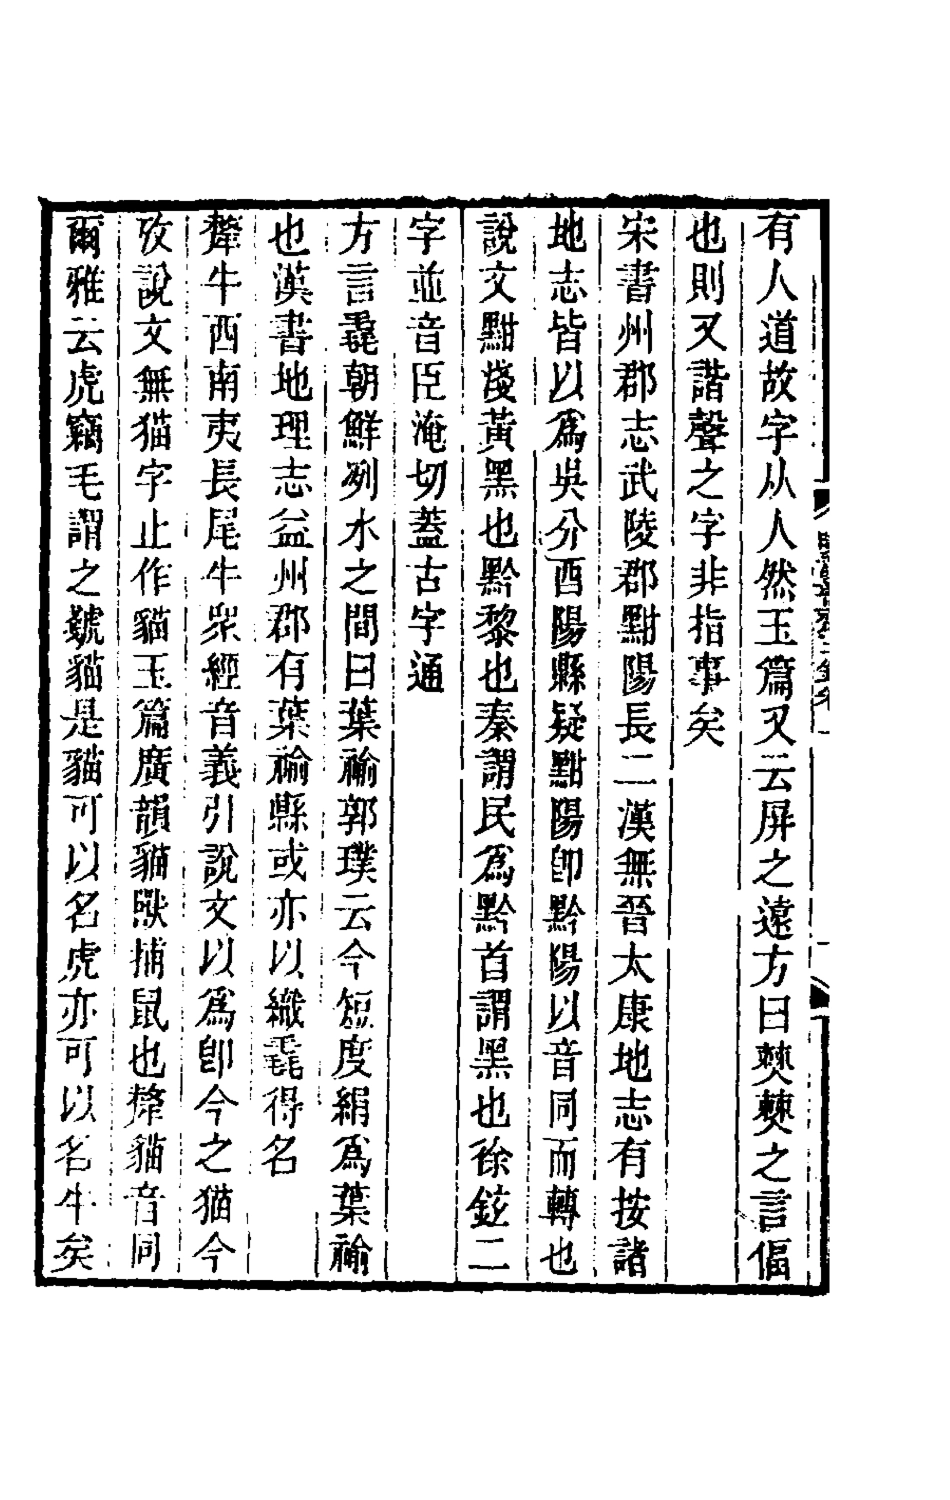 有人道故字从人然玉篇又云屏之遠方曰僰僰之言偪
也則又諧聲之字非指事矣
宋書州郡志武陵郡黚陽長二漢無晉太康地志有按諸
地志皆以爲吳分酉陽縣疑黚陽卽黔陽以音同而轉也
說文黚淺黃黑也黔黎也秦謂民爲黔首謂黑也徐鉉二
字並音臣淹切蓋古字通
方言毳朝鮮洌水之間曰葉褕郭璞云今短度絹爲葉褕
也漢書地理志益州郡有葉褕縣或亦以織毳得名
犛牛西南夷長尾牛衆經音義引說文以爲卽今之猫今
攷說文無猫字止作貓玉篇廣韻貓獸捕鼠也犛貓音同
爾雅云虎竊毛謂之虦貓是貓可以名虎亦可以名牛矣